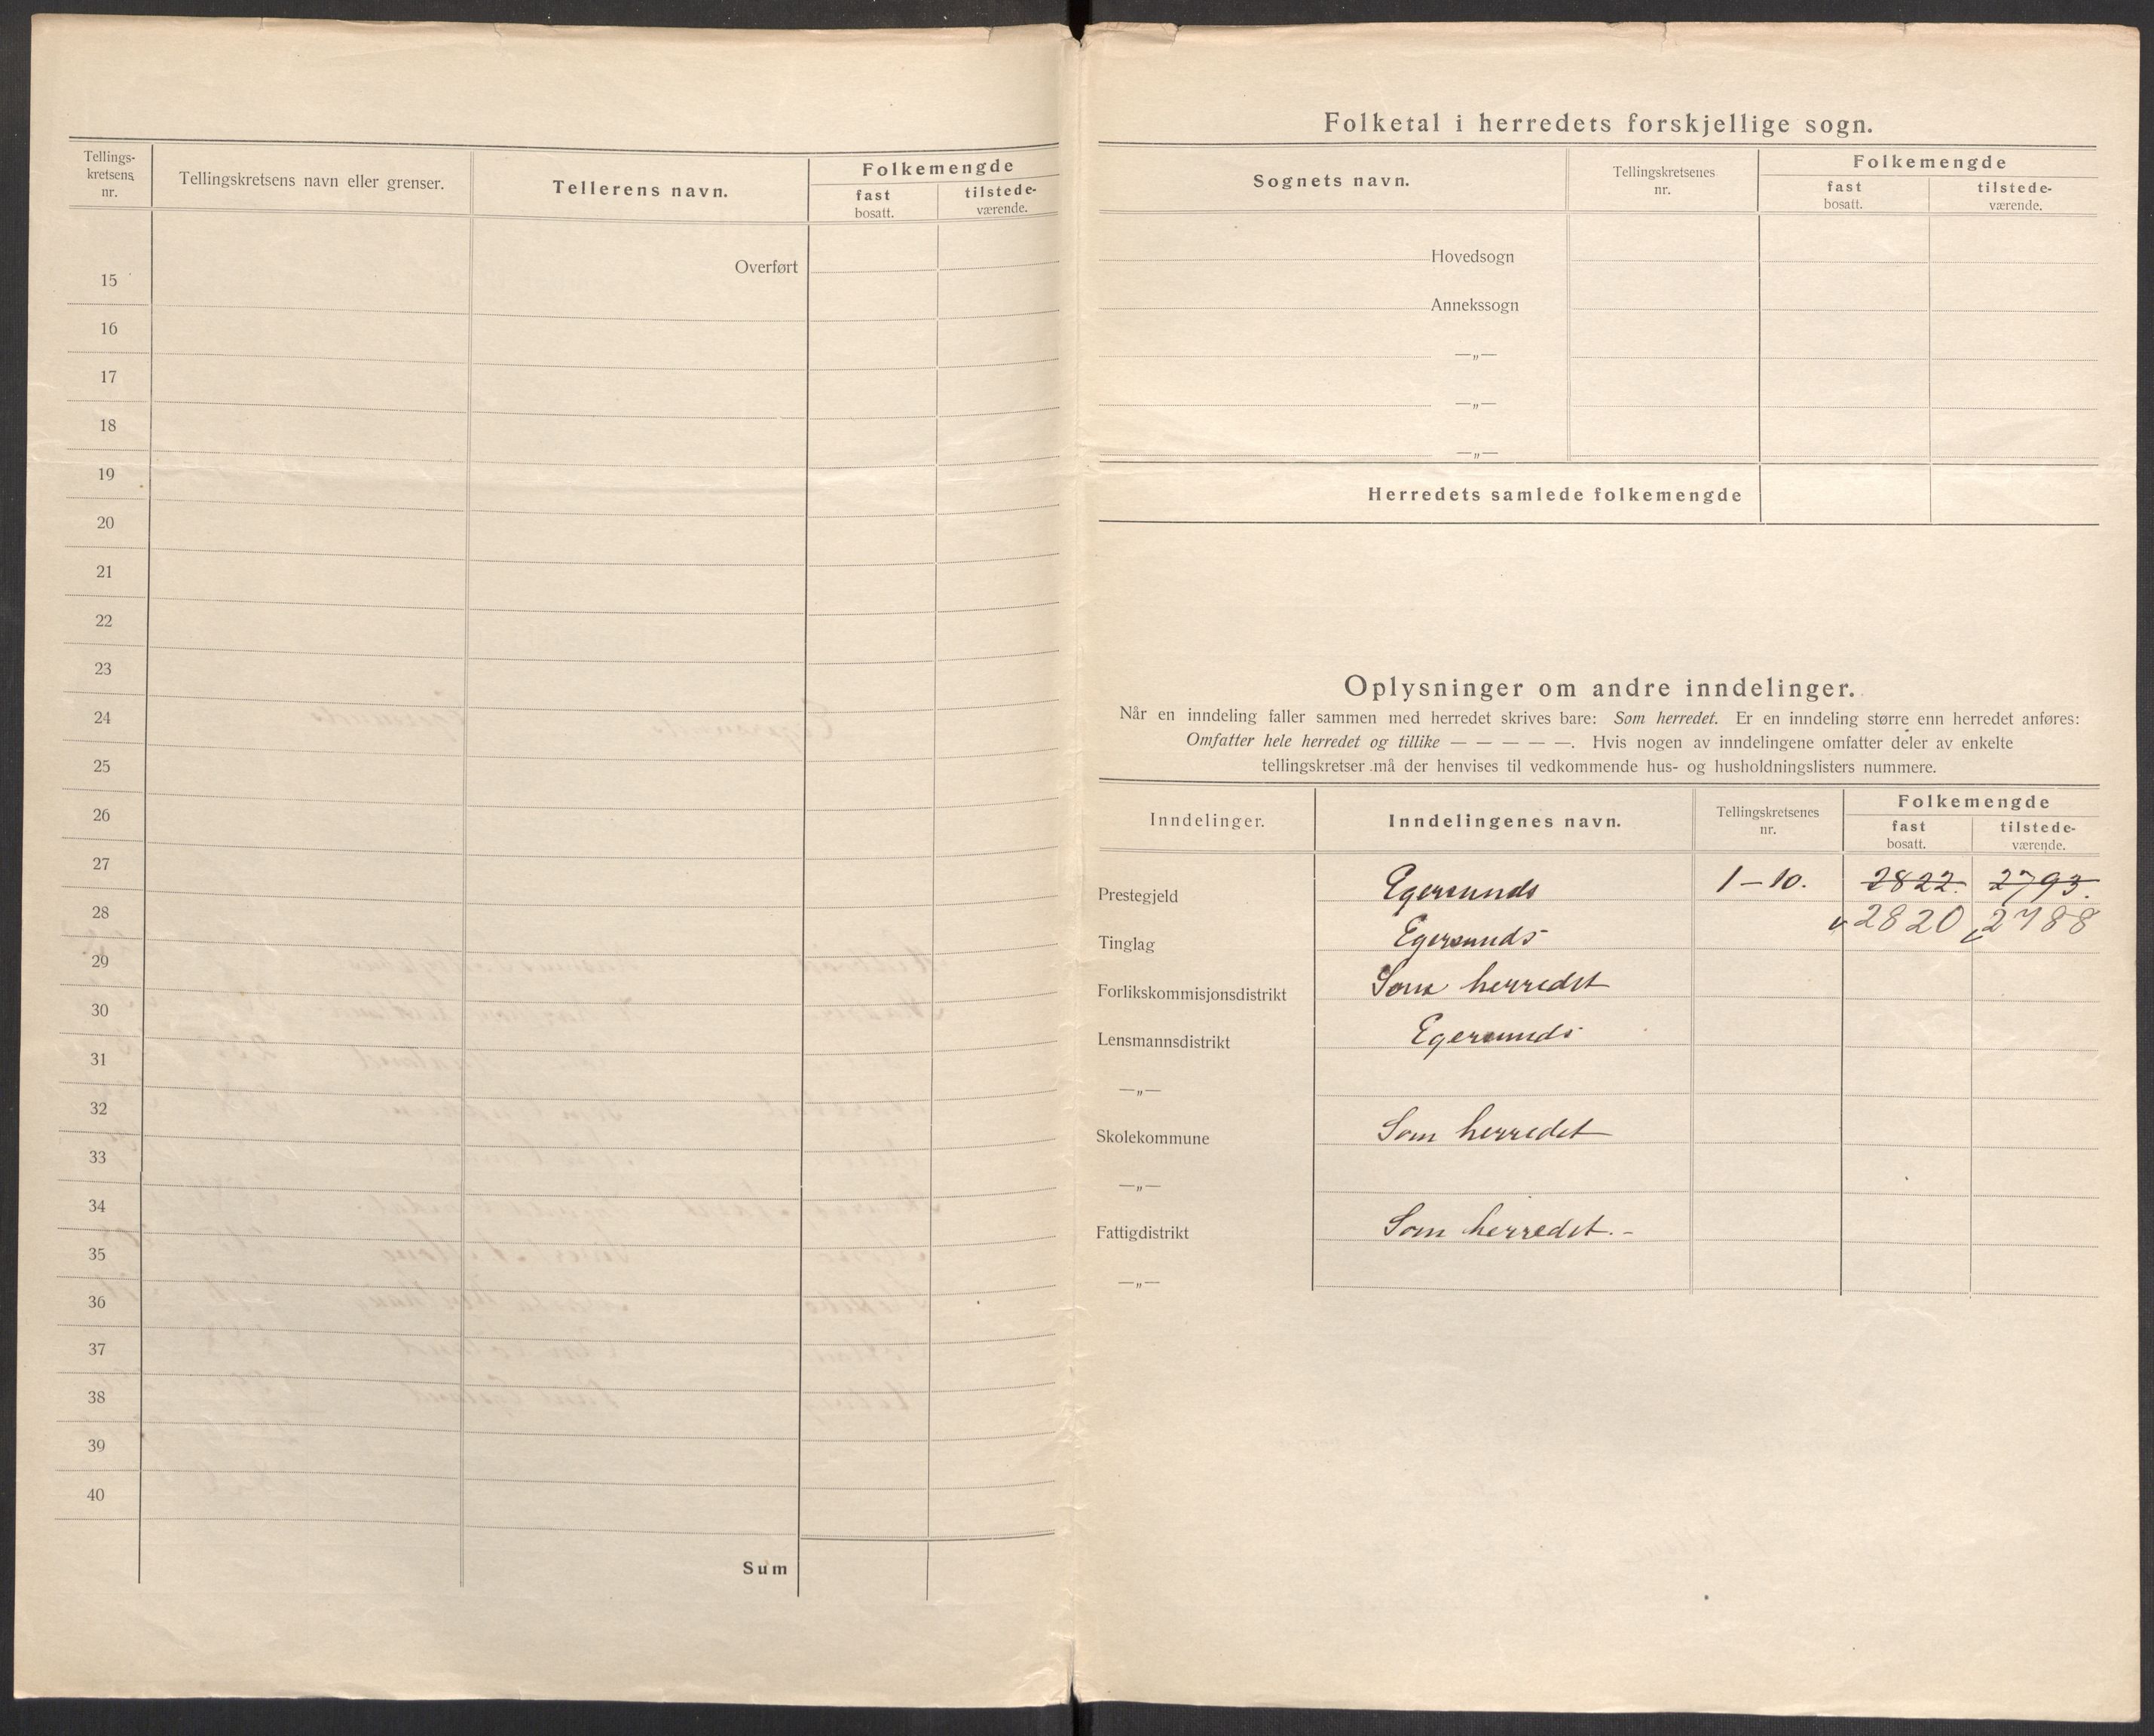 Tellings-
kretsens
nr.
Tellingskretsens navn eller grenser.
Tellerens navn.
Folkemengde
fast
bosatt.
tilstede-
værende.
Overført
15
16
17
18
19
20
21
22
23
24
25
26
27
28
29
30
31
32
33
34
35
36
37
38
39
40
Sum
Folketal i herredets forskjellige sogn.
Sognets navn.
Tellingskretsenes
nr.
Folkemengde
fast
bosatt.
tilstede-
værende.
Hovedsogn
Annekssogn
—„—
—„—
—„—
Herredets samlede folkemengde
Oplysninger om andre inndelinger.
Når en inndeling faller sammen med herredet skrives bare: Som herredet. Er en inndeling større enn herredet anføres:
Omfatter hele herredet og tillike — — — — —. Hvis nogen av inndelingene omfatter deler av enkelte
tellingskretser må der henvises til vedkommende hus- og husholdningslisters nummere.
Inndelinger.
Inndelingenes navn.
Tellingskretsenes
nr.
Folkemengde
fast
bosatt.
tilstede-
værende.
Prestegjeld Egersunds 1-10. 2822. 2793.
Tinglag Egersunds 2820 2788
Forlikskommisjonsdistrikt Som herredet
Lensmannsdistrikt Egersunds
—„—
Skolekommune Som herredet
—„—
Fattigdistrikt Som herredet. -
—„—